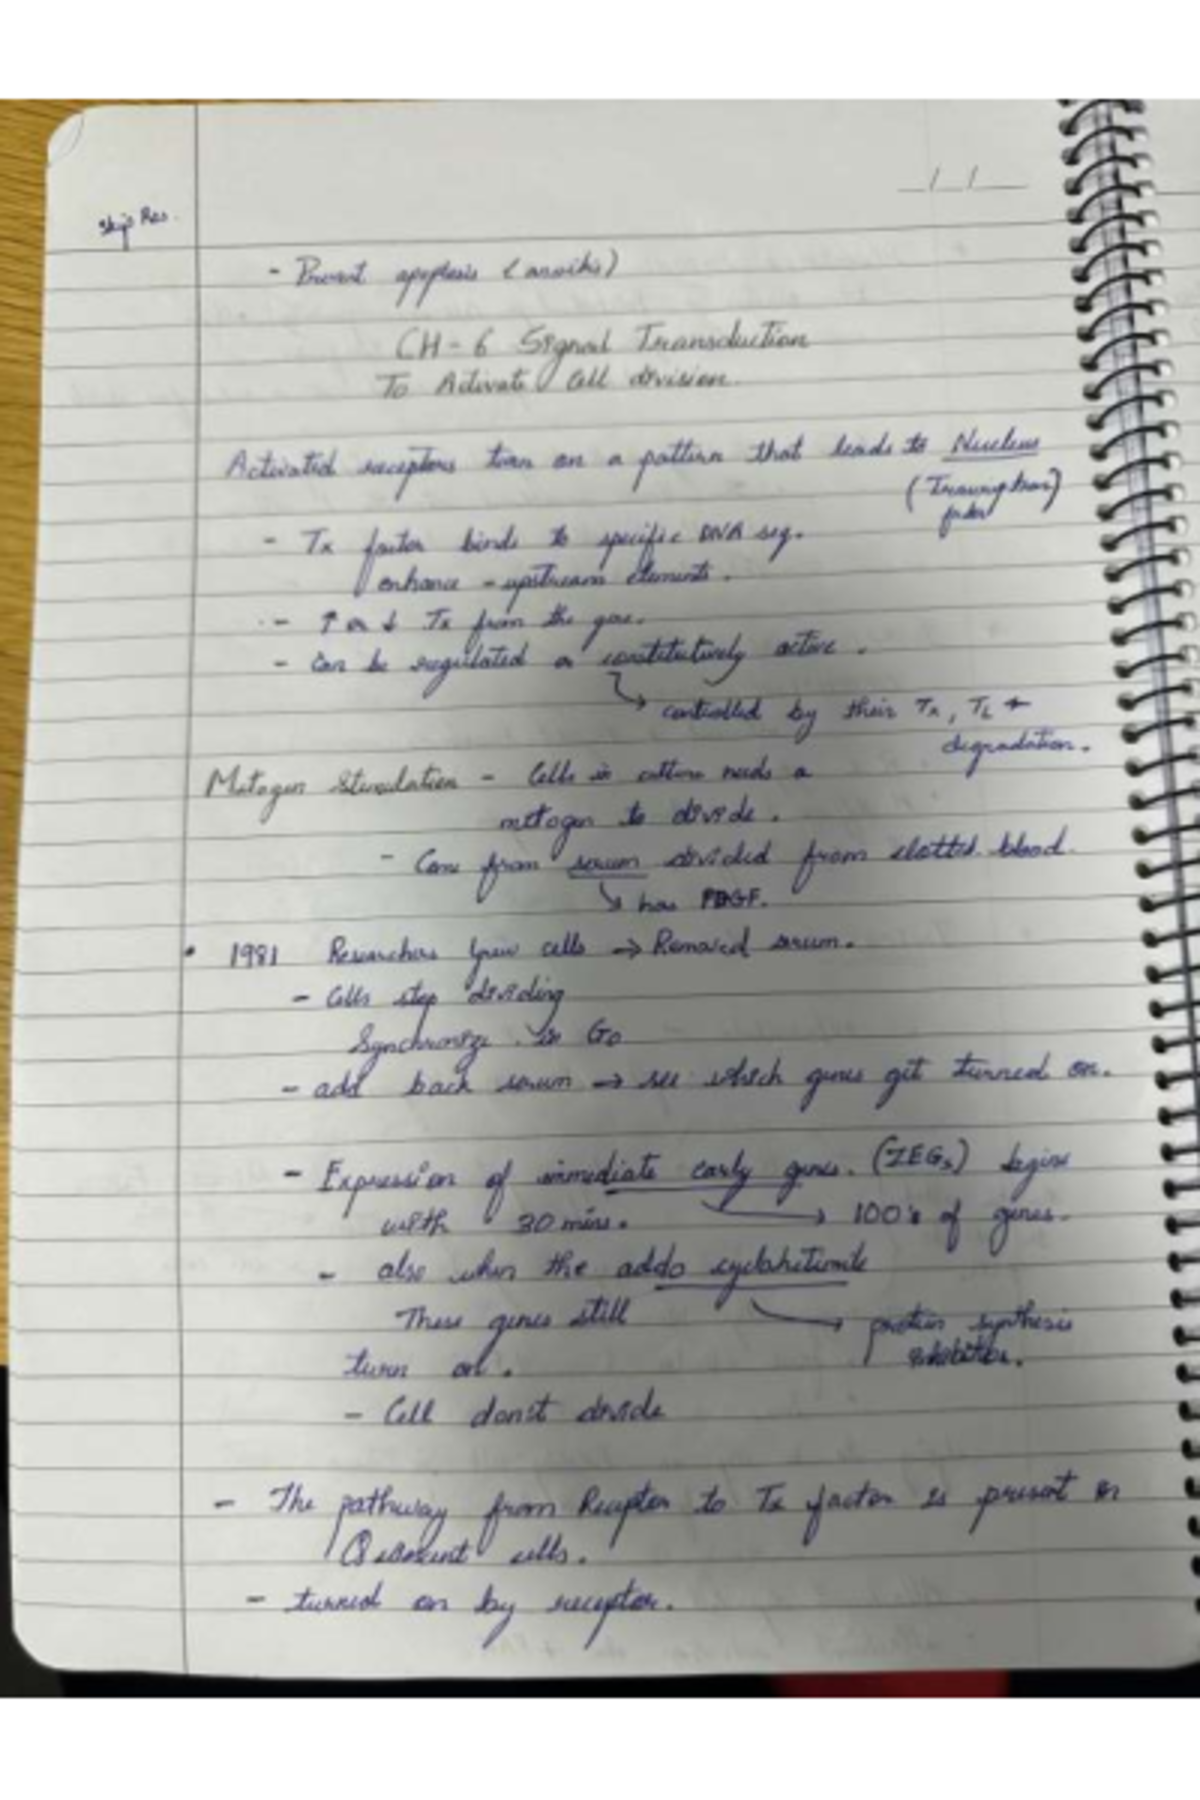 - Prevent apoptosis (anoikis)
CH-6 Signal Transduction
To Activate Cell division.
Activated receptors turn on a pattern that leads to Nucleus
(Transcription)
factor
- Tx factor binds to specific DNA seq.
enhance - upstream elements.
- ↑ or ↓ Tx from the gene.
- Can be regulated or constitutively active.
↳ controlled by their Tx, TL +
degradation.
Mitogen Stimulation - Cells in culture needs a
mitogen to divide.
- Come from serum divided from clotted blood.
↳ has PDGF.
• 1981 Researchers grew cells → Removed serum.
- Cells stop dividing
Synchronize in G0
- add back serum → see which genes get turned on.
- Expression of immediate early genes. (IEGs) begins
with 30 mins. → 100's of genes.
- also when the adds
These genes still → protein synthesis
turn on. inhibitor.
- Cell don't divide
- The pathway from Receptor to Tx factor is present in
cells.
- turned on by receptor.